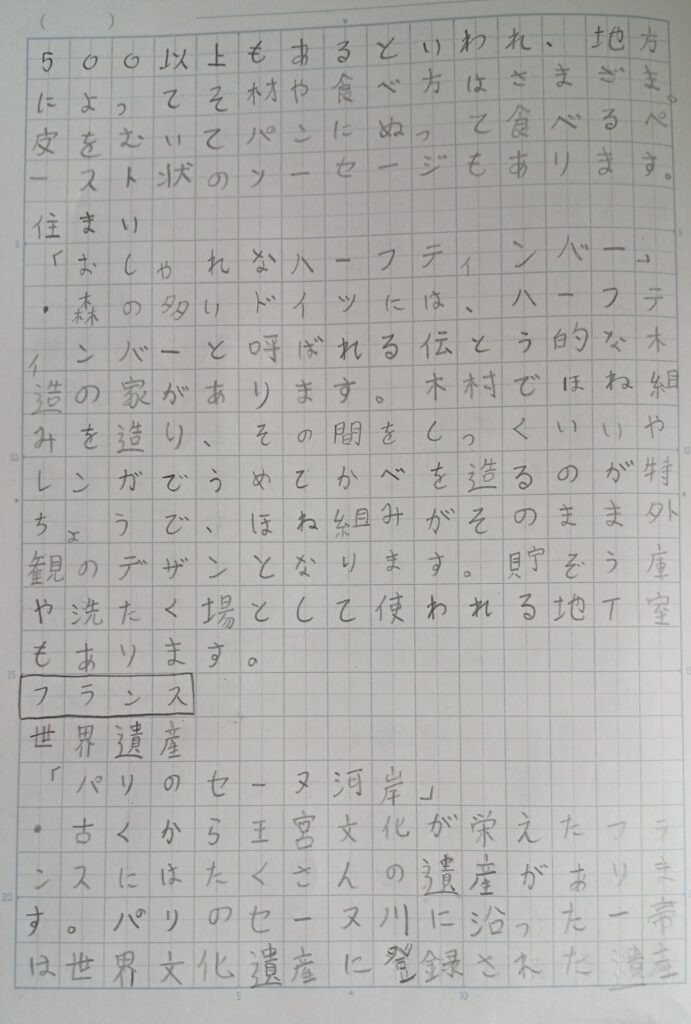 ( )
500以上もあるといわれ、地方
によってそ材や食べ方はさまざま。
皮をむいてパンにぬって食べるペ
ースト状のソーセージもあります。
住まい
「おしゃれなハーフティンバー」
・森の多いドイツには、ハーフテ
ィンバーと呼ばれる伝とう的な木
造の家があります。木村でほね組
みを造り、その間をしっくいいや
レンガでうめてかべを造るのが特
ちょうで、ほね組みがそのまま外
観のデザンとなります。貯ぞう庫
や洗たく場として使われる地下室
もあります。
フランス
世界遺産
「パリのセーヌ河岸」
・古くから王宮文化が栄えたフラ
ンスにはたくさんの遺産がありま
す。パリのセーヌ川に沿った一帯
は世界文化遺産に登録された遺産
5
10
15
20
5
10
5
15